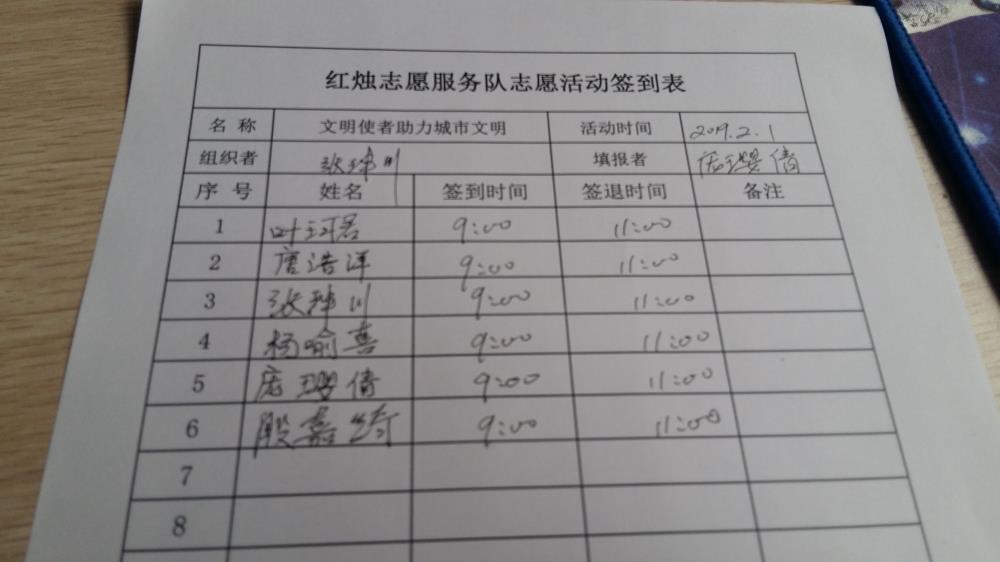 红烛志愿服务队志愿活动签到表
名 称 文明使者助力城市文明 活动时间 2019.2.1
组织者 张 川 填报者 庞璎倩
序 号 姓名 签到时间 签退时间 备注
1 叶 君 9:00 11:00
2 唐浩洋 9:00 11:00
3 张 川 9:00 11:00
4 杨喻喜 9:00 11:00
5 庞璎倩 9:00 11:00
6 殷嘉绮 9:00 11:00
7
8